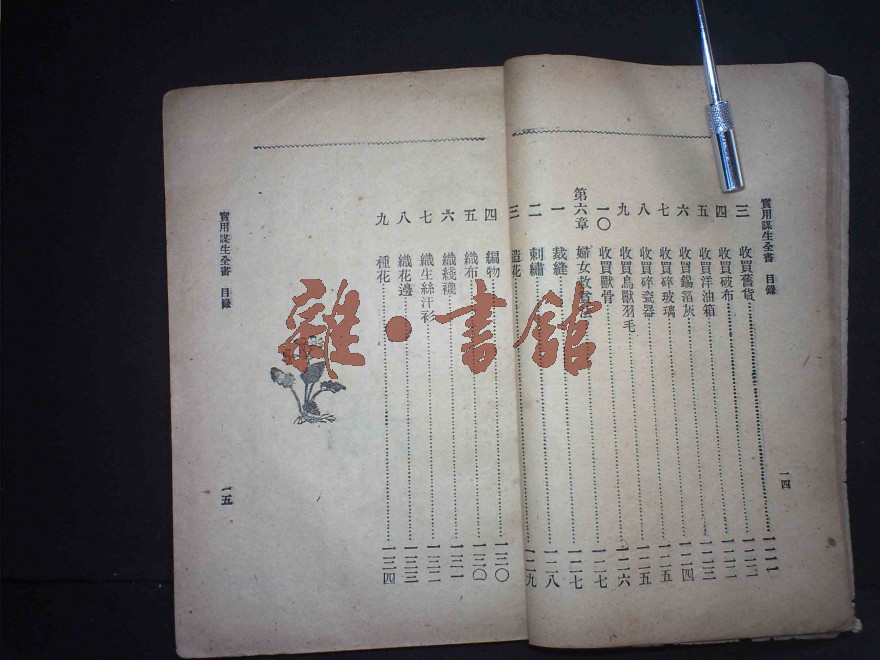 實用謀生全書 目錄 一四
三 收買舊貨 一二一
四 收買破布 一二二
五 收買洋油箱 一二二
六 收買錫箔灰 一二三
七 收買碎玻璃 一二四
八 收買碎瓷器 一二五
九 收買鳥獸羽毛 一二五
一〇 收買獸骨 一二六
第六章 婦女 一二七
一 裁縫 一二七
二 刺繡 一二八
三 造花 一二九
四 編物 一三〇
五 織布 一三〇
六 織綫襪 一三一
七 織生絲汗衫 一三二
八 織花邊 一三三
九 種花 一三四
實用謀生全書 目錄 一五
雜·書館